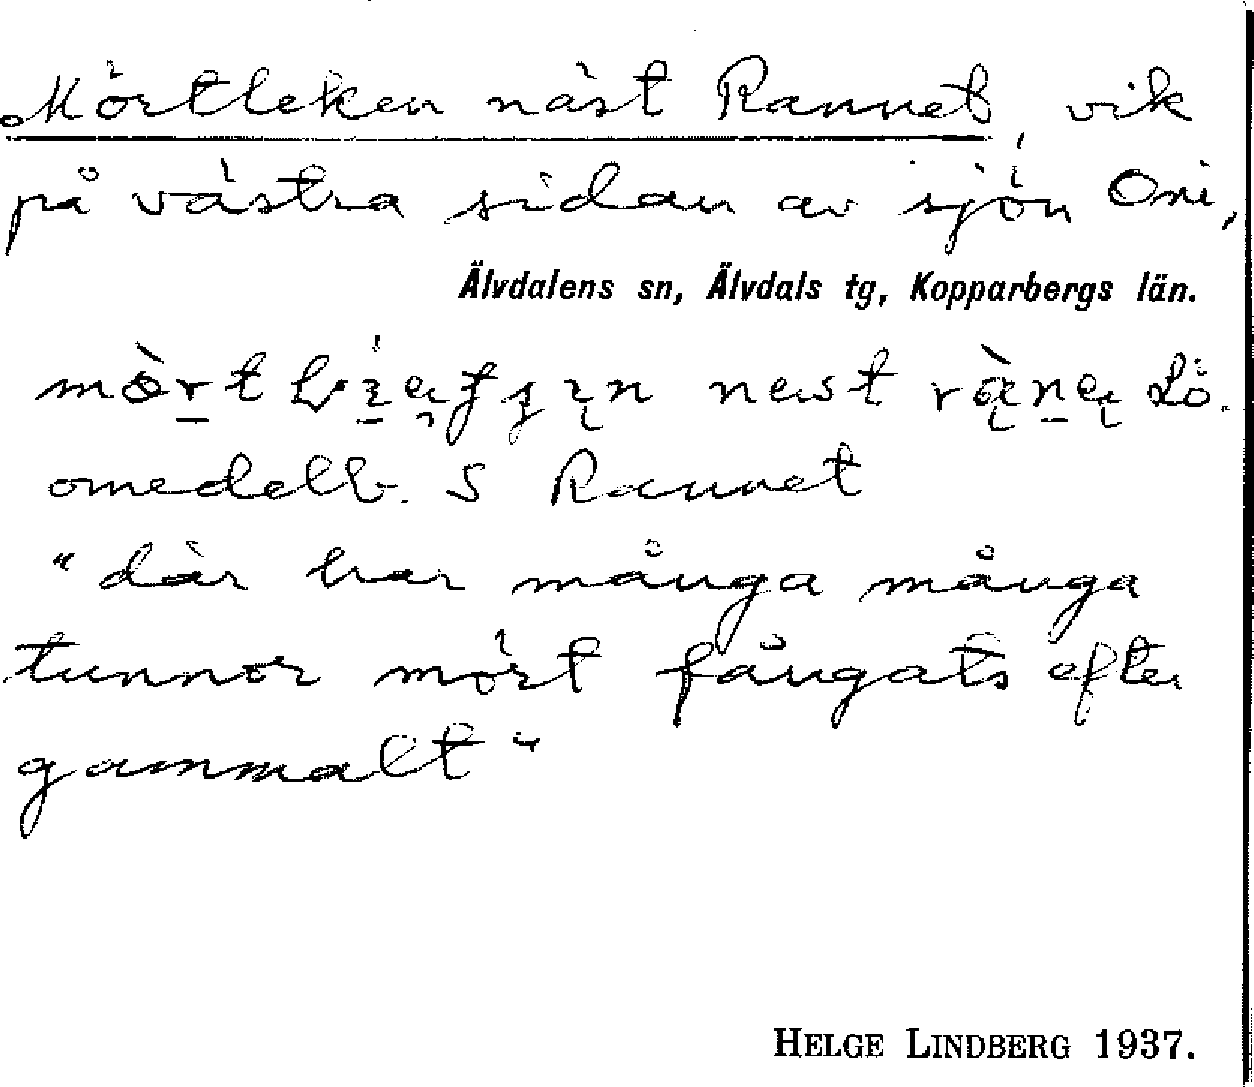 Mörtleken näst Rannet, vik
på västra sidan av sjön Oni,
Älvdalens sn, Älvdals tg, Kopparbergs län.
nest Lö.
omedelb. S Rannet
"där har många många
tunnor mört fångats efter
gammalt"
HELGE LINDBERG 1937.